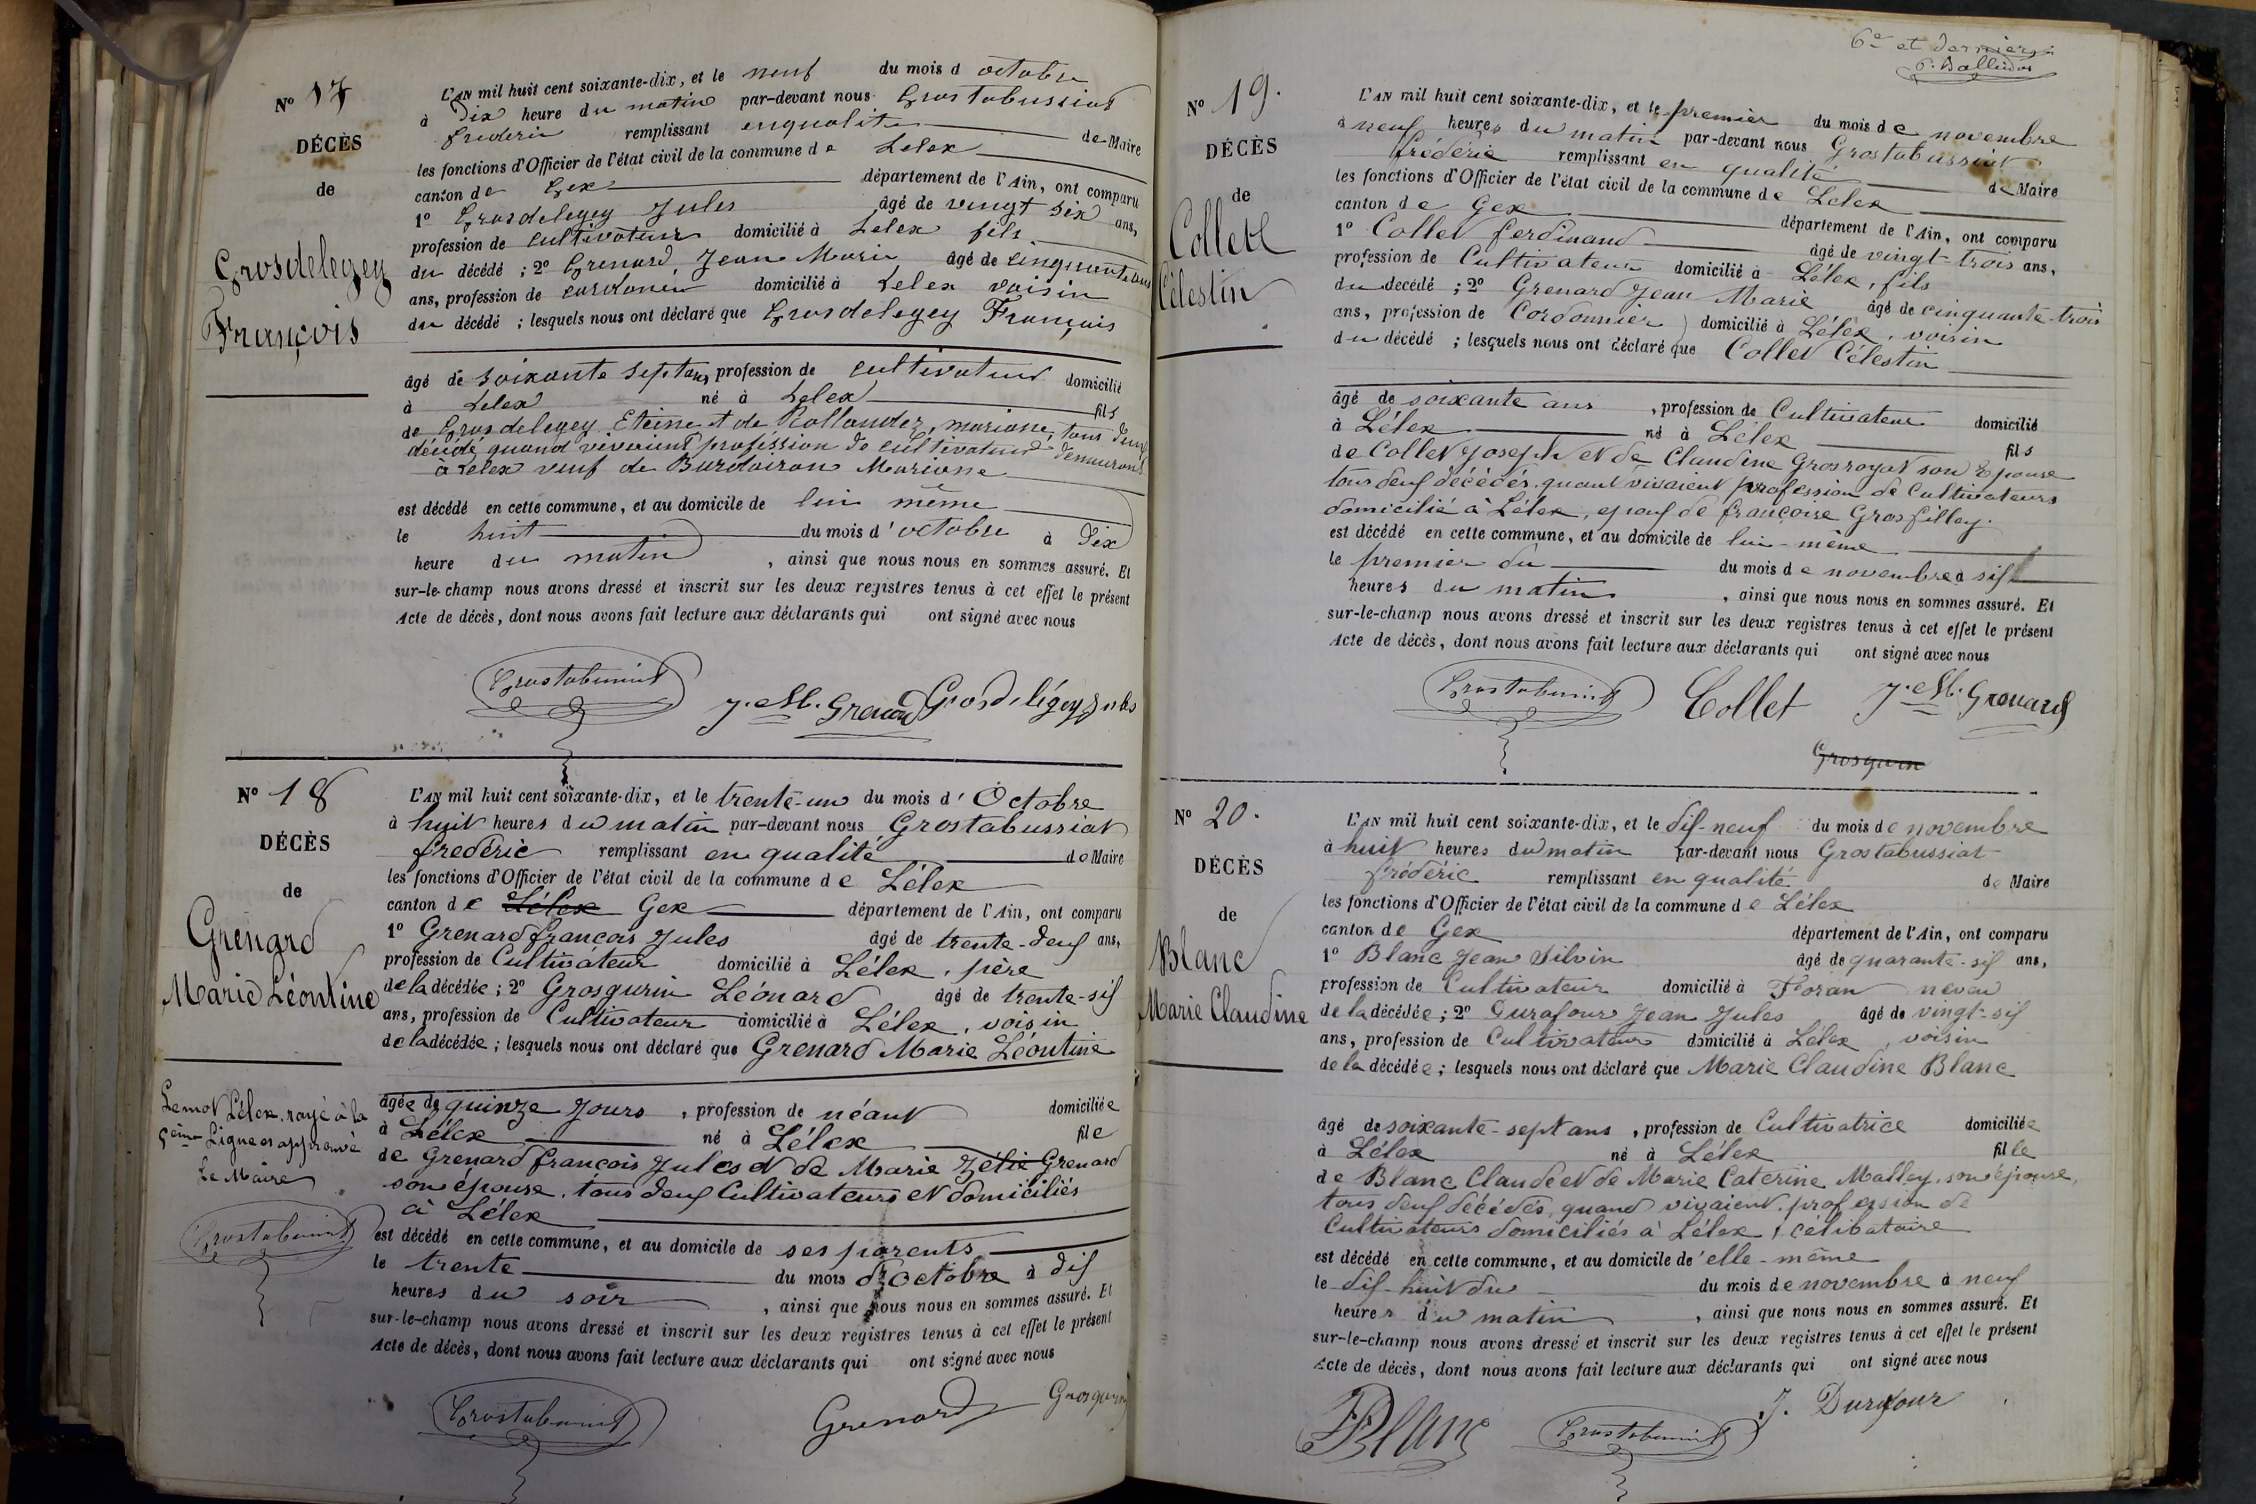 Nº 17
DÉCÈS
de
Grosdelegey
François
L'AN mil huit cent soixante-dix, et le neuf du mois d octobre
à Dix heure du matin par-devant nous Grostabussiat
frederic remplissant enqualite de Maire
les fonctions d'Officier de l'état civil de la commune de Lelex
canton de Gex département de l'Ain, ont comparu
1º Grosdelegey Jules âgé de vingt six ans,
profession de cultivateur domicilié à Lelex fils
du décédé ; 2º Grenard, Jean Marie âgé de cinquante trois
ans, profession de cordonier domicilié à Lelex voisin
du décédé ; lesquels nous ont déclaré que Grosdelegey François
âgé de soixante sept ans, profession de cultivateur domicilié
à Lelex né à Lelex fils
de Grosdelegey Eteine et de Rollandez, marianne, tous deux
décédé quand vivaient profession de cultivateur demeurant
à Lelex veuf de Burdairon Marianne
est décédé en cette commune, et au domicile de lui même
le huit du mois d'octobre à Dix
heure du matin, ainsi que nous nous en sommes assuré. Et
sur-le-champ nous avons dressé et inscrit sur les deux registres tenus à cet effet le présent
Acte de décès, dont nous avons fait lecture aux déclarants qui ont signé avec nous
Grostabussiat J. M. Grenard Grosdelégey Jules
Nº 18
DÉCÈS
de
Grenard
Marie Léontine
L'AN mil huit cent soixante-dix, et le trente-un du mois d' Octobre
à huit heures du matin par-devant nous Grostabussiat
frederic remplissant en qualité de Maire
les fonctions d'Officier de l'état civil de la commune de Lélex
canton de Lélex Gex département de l'Ain, ont comparu
1º Grenard françois Jules âgé de trente-deux ans,
profession de Cultivateur domicilié à Lélex, père
de la décédée ; 2º Grosgurin Léonard âgé de trente-six
ans, profession de Cultivateur domicilié à Lélex, voisin
de la décédée ; lesquels nous ont déclaré que Grenard Marie Léontine
âgée de quinze Jours, profession de néant domiciliée
à Lélex né à Lélex file
de Grenard françois Jules et de Marie Zélie Grenard
son épouse, tous deux Cultivateurs et domiciliés
à Lélex
est décédé en cette commune, et au domicile de ses parents
le trente du mois d'Octobre à dix
heures du soir, ainsi que nous nous en sommes assuré. Et
sur-le-champ nous avons dressé et inscrit sur les deux registres tenus à cet effet le présent
Acte de décès, dont nous avons fait lecture aux déclarants qui ont signé avec nous
Le mot Lélex rayé à la
5ème Ligne est approuvé
Le Maire
Grostabussiat
Grostabussiat Grenard Grosgurin
6e et dernier
Nº 19.
DÉCÈS
de
Collet
Célestin
L'AN mil huit cent soixante-dix, et le premier du mois de novembre
à neuf heures du matin par-devant nous Grostabussiat
frédéric remplissant en qualité de Maire
les fonctions d'Officier de l'état civil de la commune de Lélex
canton de Gex département de l'Ain, ont comparu
1º Collet ferdinand âgé de vingt-trois ans,
profession de Cultivateur domicilié à Lélex, fils
du décédé ; 2º Grenard Jean Marie âgé de cinquante-trois
ans, profession de Cordonnier domicilié à Lélex, voisin
du décédé ; lesquels nous ont déclaré que Collet Célestin
âgé de soixante ans, profession de Cultivateur domicilié
à Lélex né à Lélex fils
de Collet Joseph et de Claudine Grosroyat son Epouse
tous deux décédés, quant vivaient profession de Cultivateurs
domicilié à Lélex, epoux de françoise Grosfilley.
est décédé en cette commune, et au domicile de lui-même
le premier du du mois de novembre à six
heures du matin, ainsi que nous nous en sommes assuré. Et
sur-le-champ nous avons dressé et inscrit sur les deux registres tenus à cet effet le présent
Acte de décès, dont nous avons fait lecture aux déclarants qui ont signé avec nous
Grostabussiat Collet J. M. Grenard
Grosgurin
Nº 20.
DÉCÈS
de
Blanc
Marie Claudine
L'AN mil huit cent soixante-dix, et le dix-neuf du mois de novembre
à huit heures du matin par-devant nous Grostabussiat
frédéric remplissant en qualité de Maire
les fonctions d'Officier de l'état civil de la commune de Lélex
canton de Gex département de l'Ain, ont comparu
1º Blanc Jean Silvin âgé de quarante-six ans,
profession de Cultivateur domicilié à Foran neveu
de la décédée ; 2º Durafour Jean Jules âgé de vingt-six
ans, profession de Cultivateur domicilié à Lélex, voisin
de la décédée ; lesquels nous ont déclaré que Marie Claudine Blanc
âgé de soixante-sept ans, profession de Cultivatrice domiciliée
à Lélex né à Lélex fille
de Blanc Claude et de Marie Caterine Malley, son épouse,
tous deux décédés, quand vivaient, profession de
Cultivateurs domiciliés à Lélex, célibataire
est décédé en cette commune, et au domicile de 'elle-même
le dix-huit du du mois de novembre à neuf
heures du matin, ainsi que nous nous en sommes assuré. Et
sur-le-champ nous avons dressé et inscrit sur les deux registres tenus à cet effet le présent
Acte de décès, dont nous avons fait lecture aux déclarants qui ont signé avec nous
Blanc Grostabussiat J. Durafour